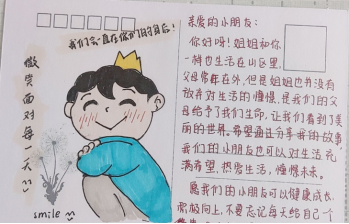 我们会一直在你们的身后!
微笑面对每一天
smile
亲爱的小朋友:
你好呀!姐姐和你
一样也生活在山区里,
父母常年在外,但是姐姐也并没有
放弃对生活的憧憬,是我们的父
母给予了我们生命,让我们看到了美
丽的世界。希望通过分享我的故事
我们的小朋友也可以对生活充
满希望,热爱生活,憧憬未来。
愿我们的小朋友可以健康成长,
积极向上,不要忘记每天给自己一个